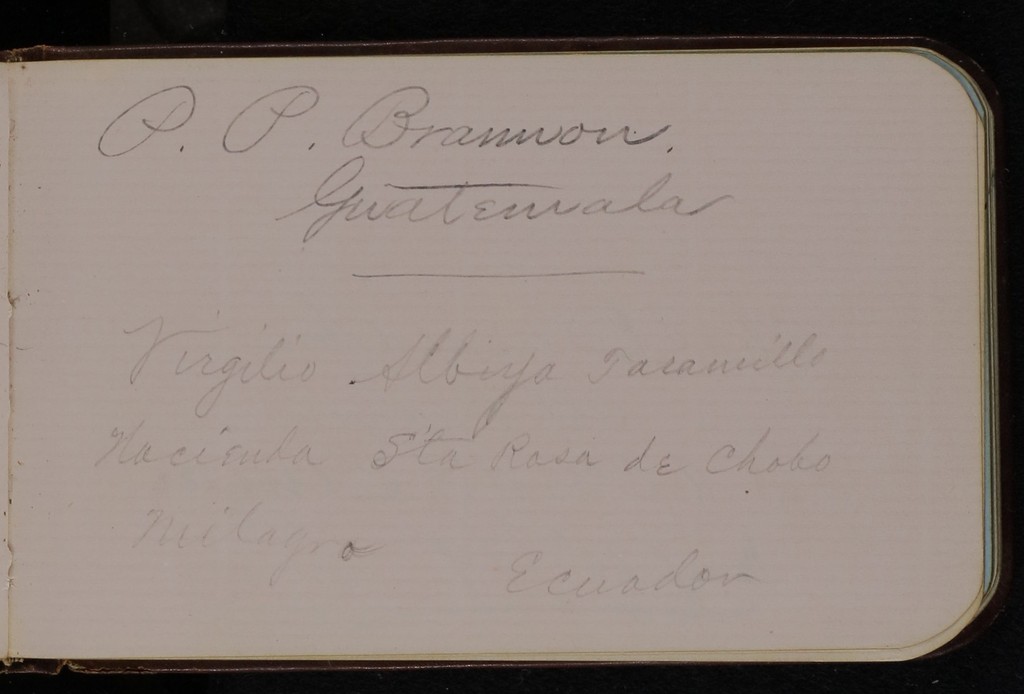 P. P. Brannon.
Guatemala
Virgilio
Hacienda Sta Rosa de Chobo
Milagro
Ecuador